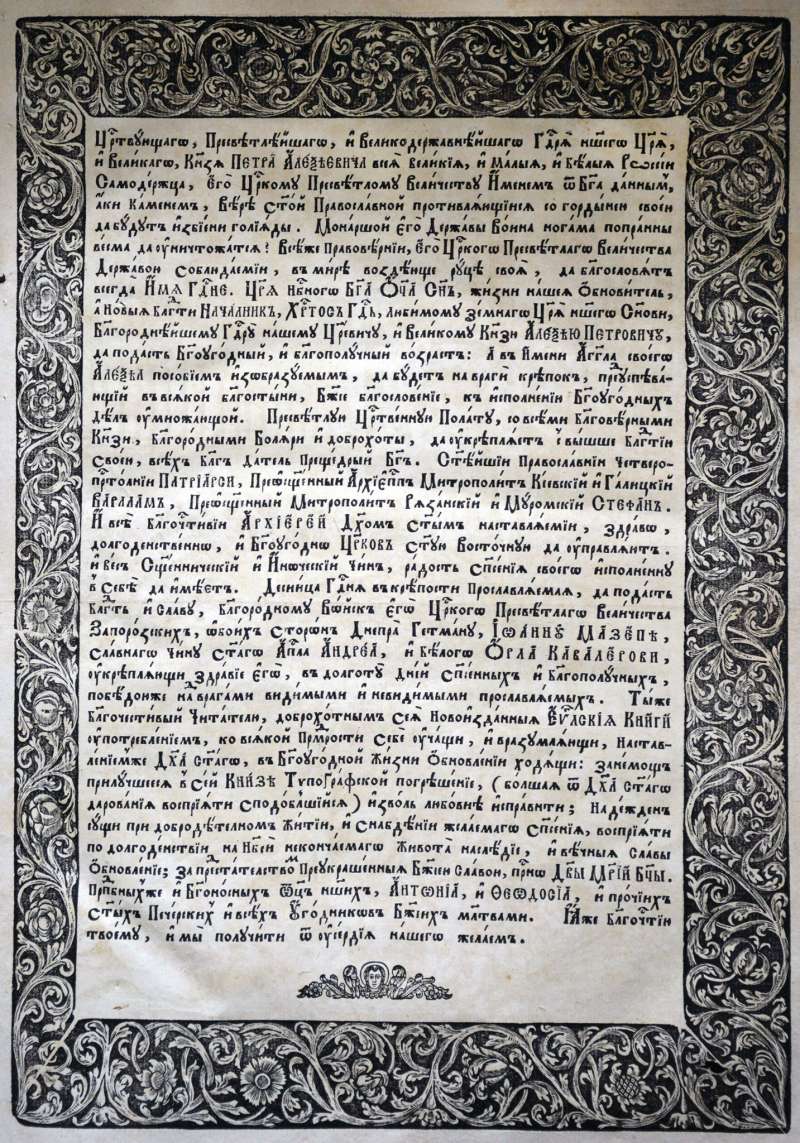 Црⷭ҇твꙋющагѡ, Пресвѣтлѣйшагѡ, и҆ Великодержавнѣйшагѡ Гдⷭ҇рѧ н҃шегѡ Цр҃ѧ,
и҆ Великагѡ, Кн҃зѧ ПЕТРА АЛЕѮѢЕВИЧА всеѧ̀ великїѧ, и҆ малыѧ, и҆ бѣлыѧ Рѡссїи
Самодержца, є҆гѡ̀ Црⷭ҇комꙋ Пресвѣтломꙋ Величествꙋ И҆менемъ ѿ Бг҃а даннымъ,
а҆ки каменемъ, Вѣрѣ ст҃ой Православной противлѧющїисѧ со гордынею своею
да бꙋдꙋтъ и҆збїени голїѧды. Монаршой є҆гѡ̀ Державы Воина ногама попранны
весма да ᲂу҆ничтожатсѧ! Всѣже Правовѣрнїи, є҆гѡ̀ Црⷭ҇когѡ Пресвѣтлагѡ Величества
Державою соблюдаемїи, въ мирѣ воздѣюще рꙋцѣ своѧ̀, да благословѧтъ
всегда И҆мѧ Гдⷭ҇не. Цр҃ѧ нбⷭ҇ногѡ Бг҃а Ѻц҃а Сн҃ъ, жизни нашеѧ Ѡбновитель,
а҆ Новыѧ Блгⷣти НАЧАЛНИКЪ, ХРⷭ҇ТОСЪ ГДⷭ҇Ь, любимомꙋ земнагѡ Цр҃ѧ н҃шегѡ Сн҃ови,
Благороднѣйшемꙋ Гдⷭ҇рꙋ нашемꙋ Цр҃евичꙋ, и҆ Великомꙋ Кн҃зю АЛЕѮѢЮ ПЕТРОВИЧꙊ,
да подастъ Бг҃оꙋгодный, и҆ благополꙋчный возрастъ: А҆ въ И҆мени Агг҃ла своегѡ
АЛЕѮѢА пособїемъ и҆зѡбразꙋемымъ, да бꙋдетъ на враги крѣпокъ, преꙋспѣва-
ющїй въ всѧкой благостыни, Бж҃їе благословенїе, къ и҆сполненїю Бг҃оꙋгодныхъ
дѣлъ ᲂу҆множающой. Пресвѣтлꙋю Црⷭ҇твеннꙋю Полатꙋ, со всѣми Благовѣрными
Кн҃зи, Благородными Болѧри и҆ доброхоты, да ᲂу҆крѣплѧетъ свыше Блгⷣтїю
своею, всѣхъ Благъ датель Прещедрый Бг҃ъ. Ст҃ѣйшїи Православнїи Четверо-
прⷭ҇толнїи ПАТРЇАРСИ, Преѡсщ҃енный Архїеп҃пъ Митрополитъ Кїевскїй и҆ Галицкїй
ВАРЛААМЪ, Преѡсщ҃енный Митрополитъ Рѧзанскїй и҆ Мꙋромскїй СТЕФАНЪ.
И҆ всѣ Благочⷭ҇тивїи АРХЇЕРЕЙ Дх҃омъ ст҃ымъ наставлѧемїи, здравѡ,
долгоденственнѡ, и҆ Бг҃оꙋгоднѡ Цр҃ковь ст҃ꙋю Восточнꙋю да ᲂу҆правлѧютъ.
и҆ весь Сщ҃енническїй и҆ И҆ноческїй Чинъ, радость сп҃сенїѧ своегѡ и҆сполненнꙋ
в себѣ да и҆мѣетъ. Десница Гдⷭ҇нѧ въ крѣпости Прославлѧемаѧ, да подастъ
Блгⷣть и҆ Славꙋ, Благородномꙋ Войскъ є҆гѡ̀ Црⷭ҇когѡ Пресвѣтлагѡ Величества
Запорозскихъ, ѡ҆боихъ сторонъ Днепра Гетманꙋ, ЇѠАННꙊ МАЗЕПѢ,
славнагѡ чинꙋ ст҃агѡ Апⷭ҇ла АНДРЕА, и҆ Бѣлогѡ ОРЛА КАВАЛЕРОВИ,
ᲂу҆крѣплѧющи здравїе є҆гѡ̀, въ долготꙋ дней сп҃сенныхъ и҆ благополꙋчныхъ,
побѣдоюже над врагами видимыми и҆ невидимыми прославлѧемыхъ. Тыже
Благочестивый Читателю, доброхотнымъ сеѧ̀ Новоизданныѧ ЕѴⷢ҇ЛСКЇѦ КНИГИ
ᲂу҆потребленїемъ, ко всѧкой Прмⷣрости себе ᲂу҆чащи, и҆ вразꙋмлѧющи, настав-
ленїемже Дх҃а Ст҃агѡ, въ Бг҃оꙋгодной Жизни Ѡбновленїи ходѧщи: занемощъ
прилꙋчшеесѧ в сей Кн҃изѣ Тѵпографской погрѣшенїе, (болшаѧ ѿ Дх҃а Ст҃агѡ
дарованїѧ воспрїѧти сподоблшїйсѧ) и҆зволь любовнѣ и҆справити; Надежденъ
сꙋщи при добродѣтелномъ житїи, и҆ снабдѣнїи желаемагѡ сп҃сенїѧ, воспрїѧти
по долгоденствїи на Нб҃сѣ нескончаемагѡ Живота наслѣдїе, и҆ вѣчныѧ Славы
Ѡбновленїе; за предстателствомъ Преꙋкрашенныѧ Бж҃їею Славою, прⷭ҇нѡ Дв҃ы МРЇИ Бц҃ы.
Прпⷣбныхже и҆ Бг҃оносныхъ Ѿц҃ъ н҃шихъ, АНТОНЇА, и҆ ѲЕОДОСЇА, и҆ прочїихъ
ст҃ыхъ Печерскихъ и҆ всѣхъ Ꙋгодниковъ Бж҃їихъ мл҃твами. Ꙗ҆же Благочⷭ҇тїю
твоемꙋ, и҆ мы̀ полꙋчити ѿ ᲂу҆сердїѧ нашегѡ желаемъ.